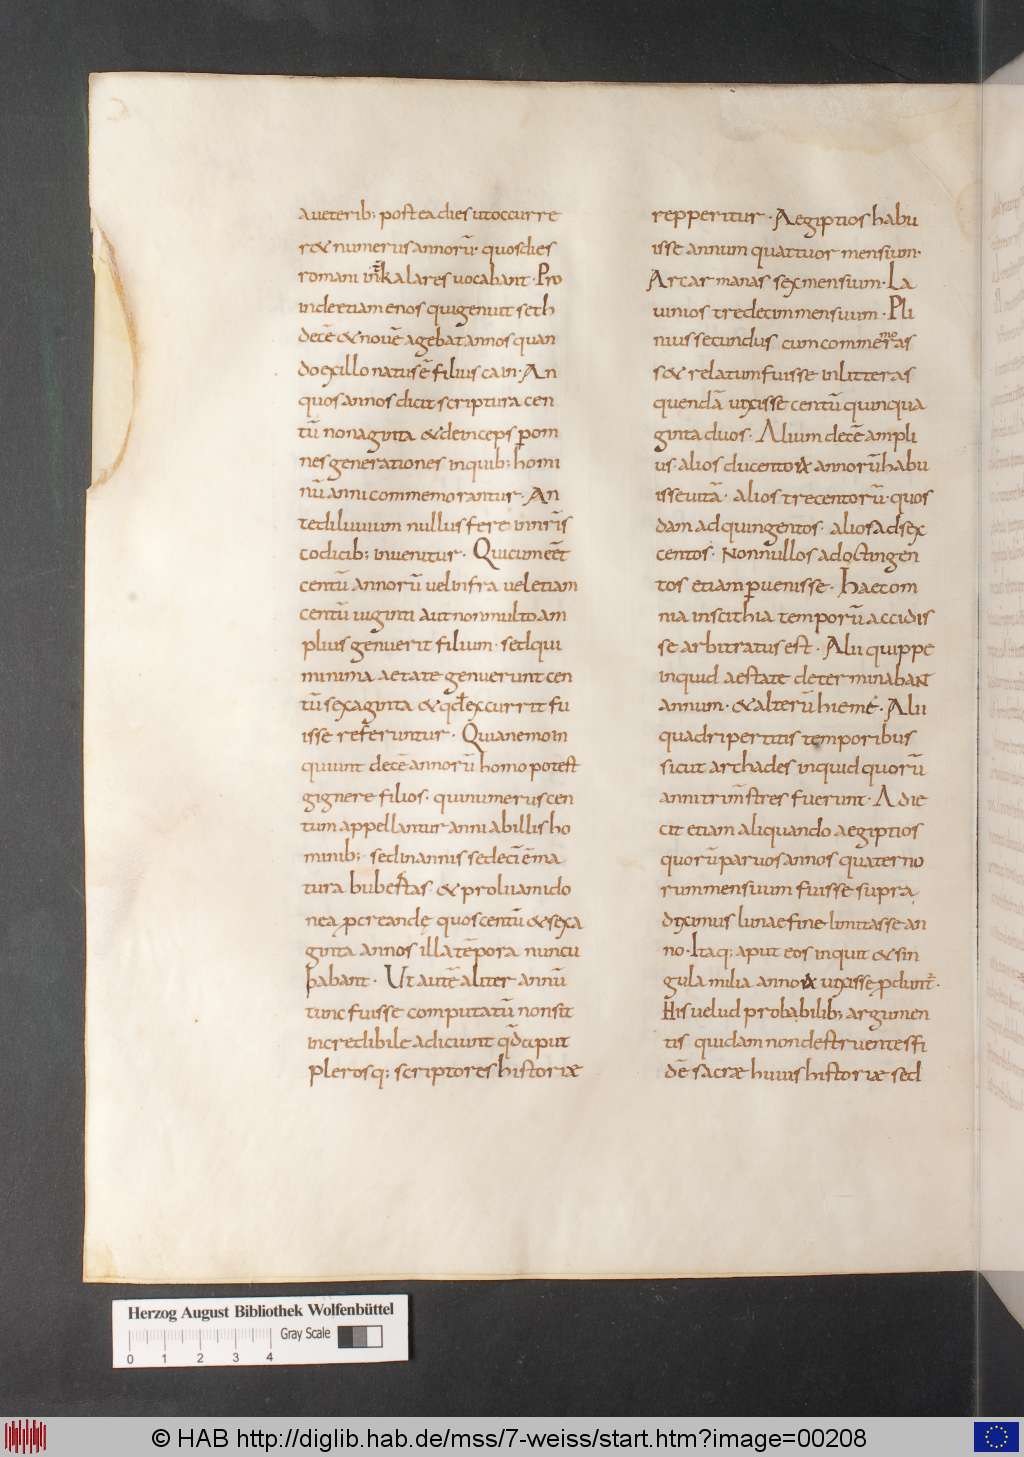 aueterib; postea dies utoccurre
r& numerus annorū. quos dies
romani int̄kalares uocabant. Pro
inde etiam enos qui genuit seth
decē & nouē agebat annos quan
do ex illo natus ē filius cain. An
quos annos dicit scriptura cen
tū nonaginta & deinceps p̄ om
nes generationes in quib; homi
nū anni commemorantur. An
te diluuium nullus fere in nr̄is
codicib; inuenitur. Qui cum eēt
centū annorū uel infra uel etiam
centū uiginti aut non multo am
plius genuerit filium. sed qui
minima aetate genuerunt cen
tū sexaginta & qđ excurrit fu
isse referuntur. Quia nemo in
quiunt decē annorū homo potest
gignere filios. qui numerus cen
tum appellantur anni ab illis ho
minib; sed in annis sedecī ē ma
tura bubestas & proli iam ido
nea p̄creandę quos centū & sexa
ginta annos illa tēpora nuncu
babant. Ut autē aliter annū
tunc fuisse computatū non sit
incredibile adiciunt qđ aput
plerosq; scriptores historiæ
repperitur. Aegiptios habu
isse annum quattuor mensium.
Arcarmanas sex mensium. La
uinios tredecim mensium. Pli
nius secundus cum commemoras
s& relatum fuisse in litteras
quendā uixisse centū quinqua
ginta duos. Alium decē ampli
us. alios ducentorum annorū habu
isse uitā. alios trecentorū. quos
dam ad quingentos. alios ad sex
centos. Nonnullos ad octingen
tos etiam p̄uenisse. haec om
nia inscithia temporū accidis
se arbitratus est. Alii quippe
inquid aestate determinabant
annum. & alterū hieme. Alii
quadripertitis temporibus
sicut archades inquid quorū
anni trimēstres fuerunt. Adie
cit etiam aliquando aegiptios
quorū paruos annos quaterno
rum mensium fuisse supra
diximus lunae fine limitasse an
no. Itaq; aput eos inquit & sin
gula milia annorum uixisse p̄dunt̄.
His uelud probabilib; argumen
tis quidam non destruentes fi
dē sacræ huius historiæ sed
Herzog August Bibliothek Wolfenbüttel
Gray Scale
0 1 2 3 4
© HAB http://diglib.hab.de/mss/7-weiss/start.htm?image=00208